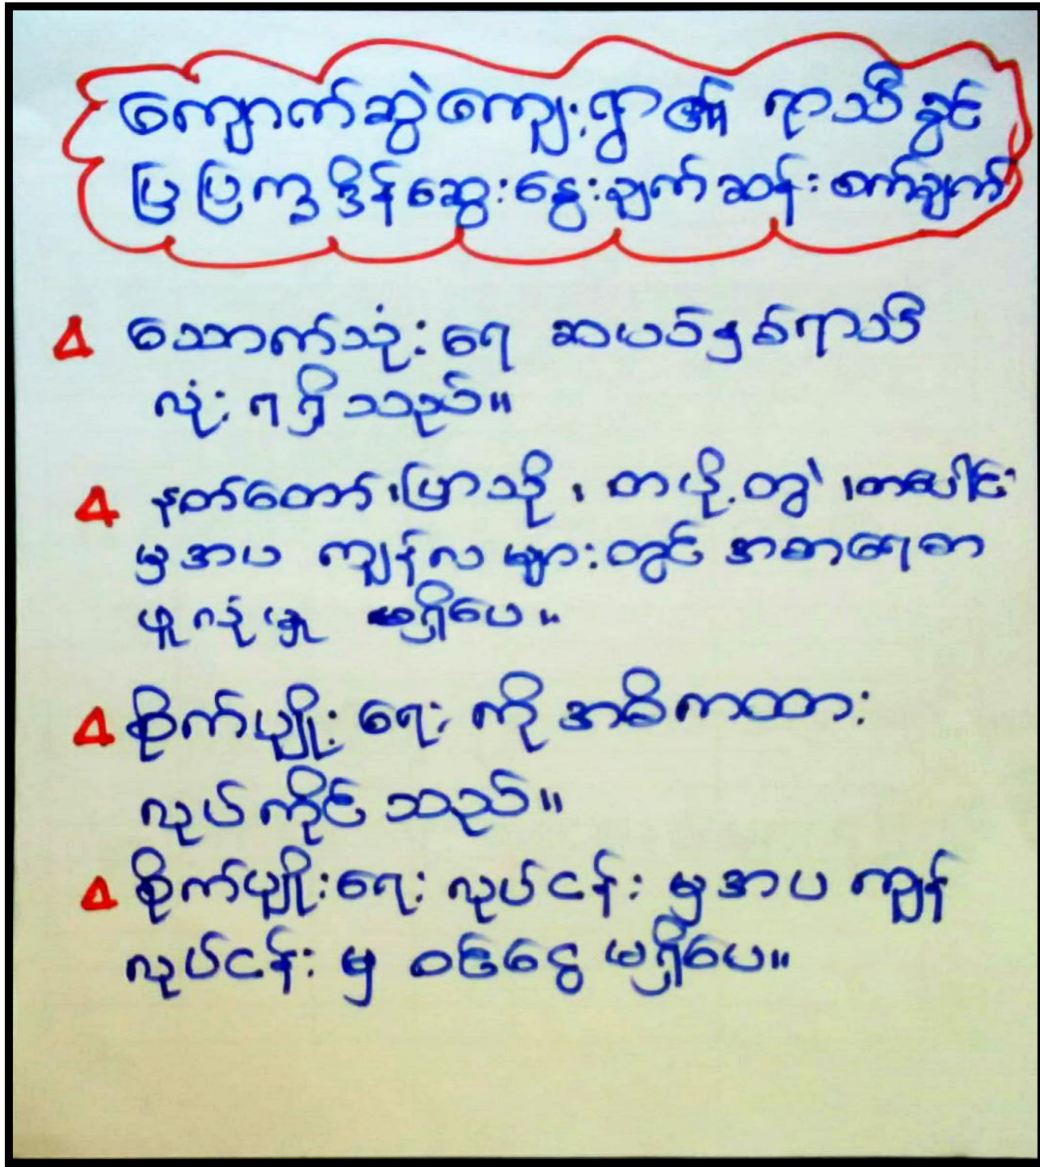 ကျောက်ဆွဲကျေးရွာ၏ ရာသီခွင်
ပြပြက္ခဒိန်ဆွေးနွေးချက်ဆန်းစက်ချက်
သောက်သုံးရေ ဆယ်နှစ်ရာသီ
လုံး ရရှိသည်။
နတ်တော်၊ပြာသို၊ တပို့တွဲ၊တပေါင်း
မှအပ ကျန်လ များတွင် အစာရေစာ
ဖူလုံမှု မရှိပေ။
စိုက်ပျိုးရေးကို အဓိကထား
လုပ်ကိုင်သည်။
စိုက်ပျိုးရေး လုပ်ငန်း မှအပ ကျန်
လုပ်ငန်းမှ ဝင်ငွေ မရှိပေ။